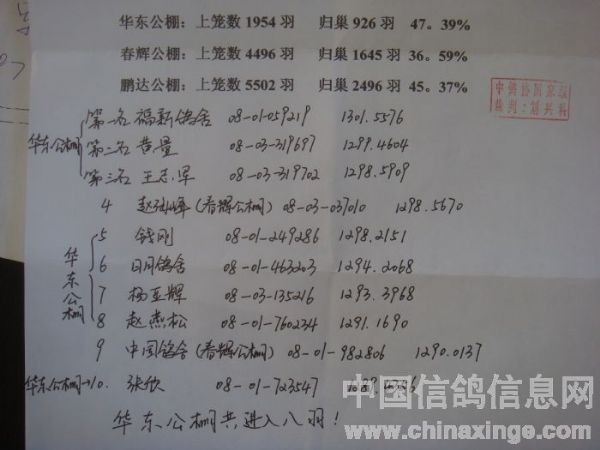 华东公棚：上笼数 1954 羽 归巢 926 羽 47。39%
春辉公棚：上笼数 4496 羽 归巢 1645 羽 36。59%
鹏达公棚：上笼数 5502 羽 归巢 2496 羽 45。37%
中鸽协国家级
裁判：
华东公棚
第一名 福新鸽舍 08-01-059219 1301.5576
第二名 黄量 08-03-319697 1299.4604
第三名 王志军 08-03-319702 1298.5909
4 赵 (春辉公棚) 08-03-037010 1298.5670
华东公棚
5 钱刚 08-01-249286 1298.2151
6 日月鸽舍 08-01-463203 1294.2068
7 杨亚辉 08-03-135216 1293.3968
8 赵杰松 08-01-760234 1291.1690
9 中国鸽舍(春辉公棚) 08-01-982806 1290.0137
华东公棚→10. 张欣 08-01-723547
华东公棚共进入八羽!
中国信鸽信息网
www.chinaxinge.com